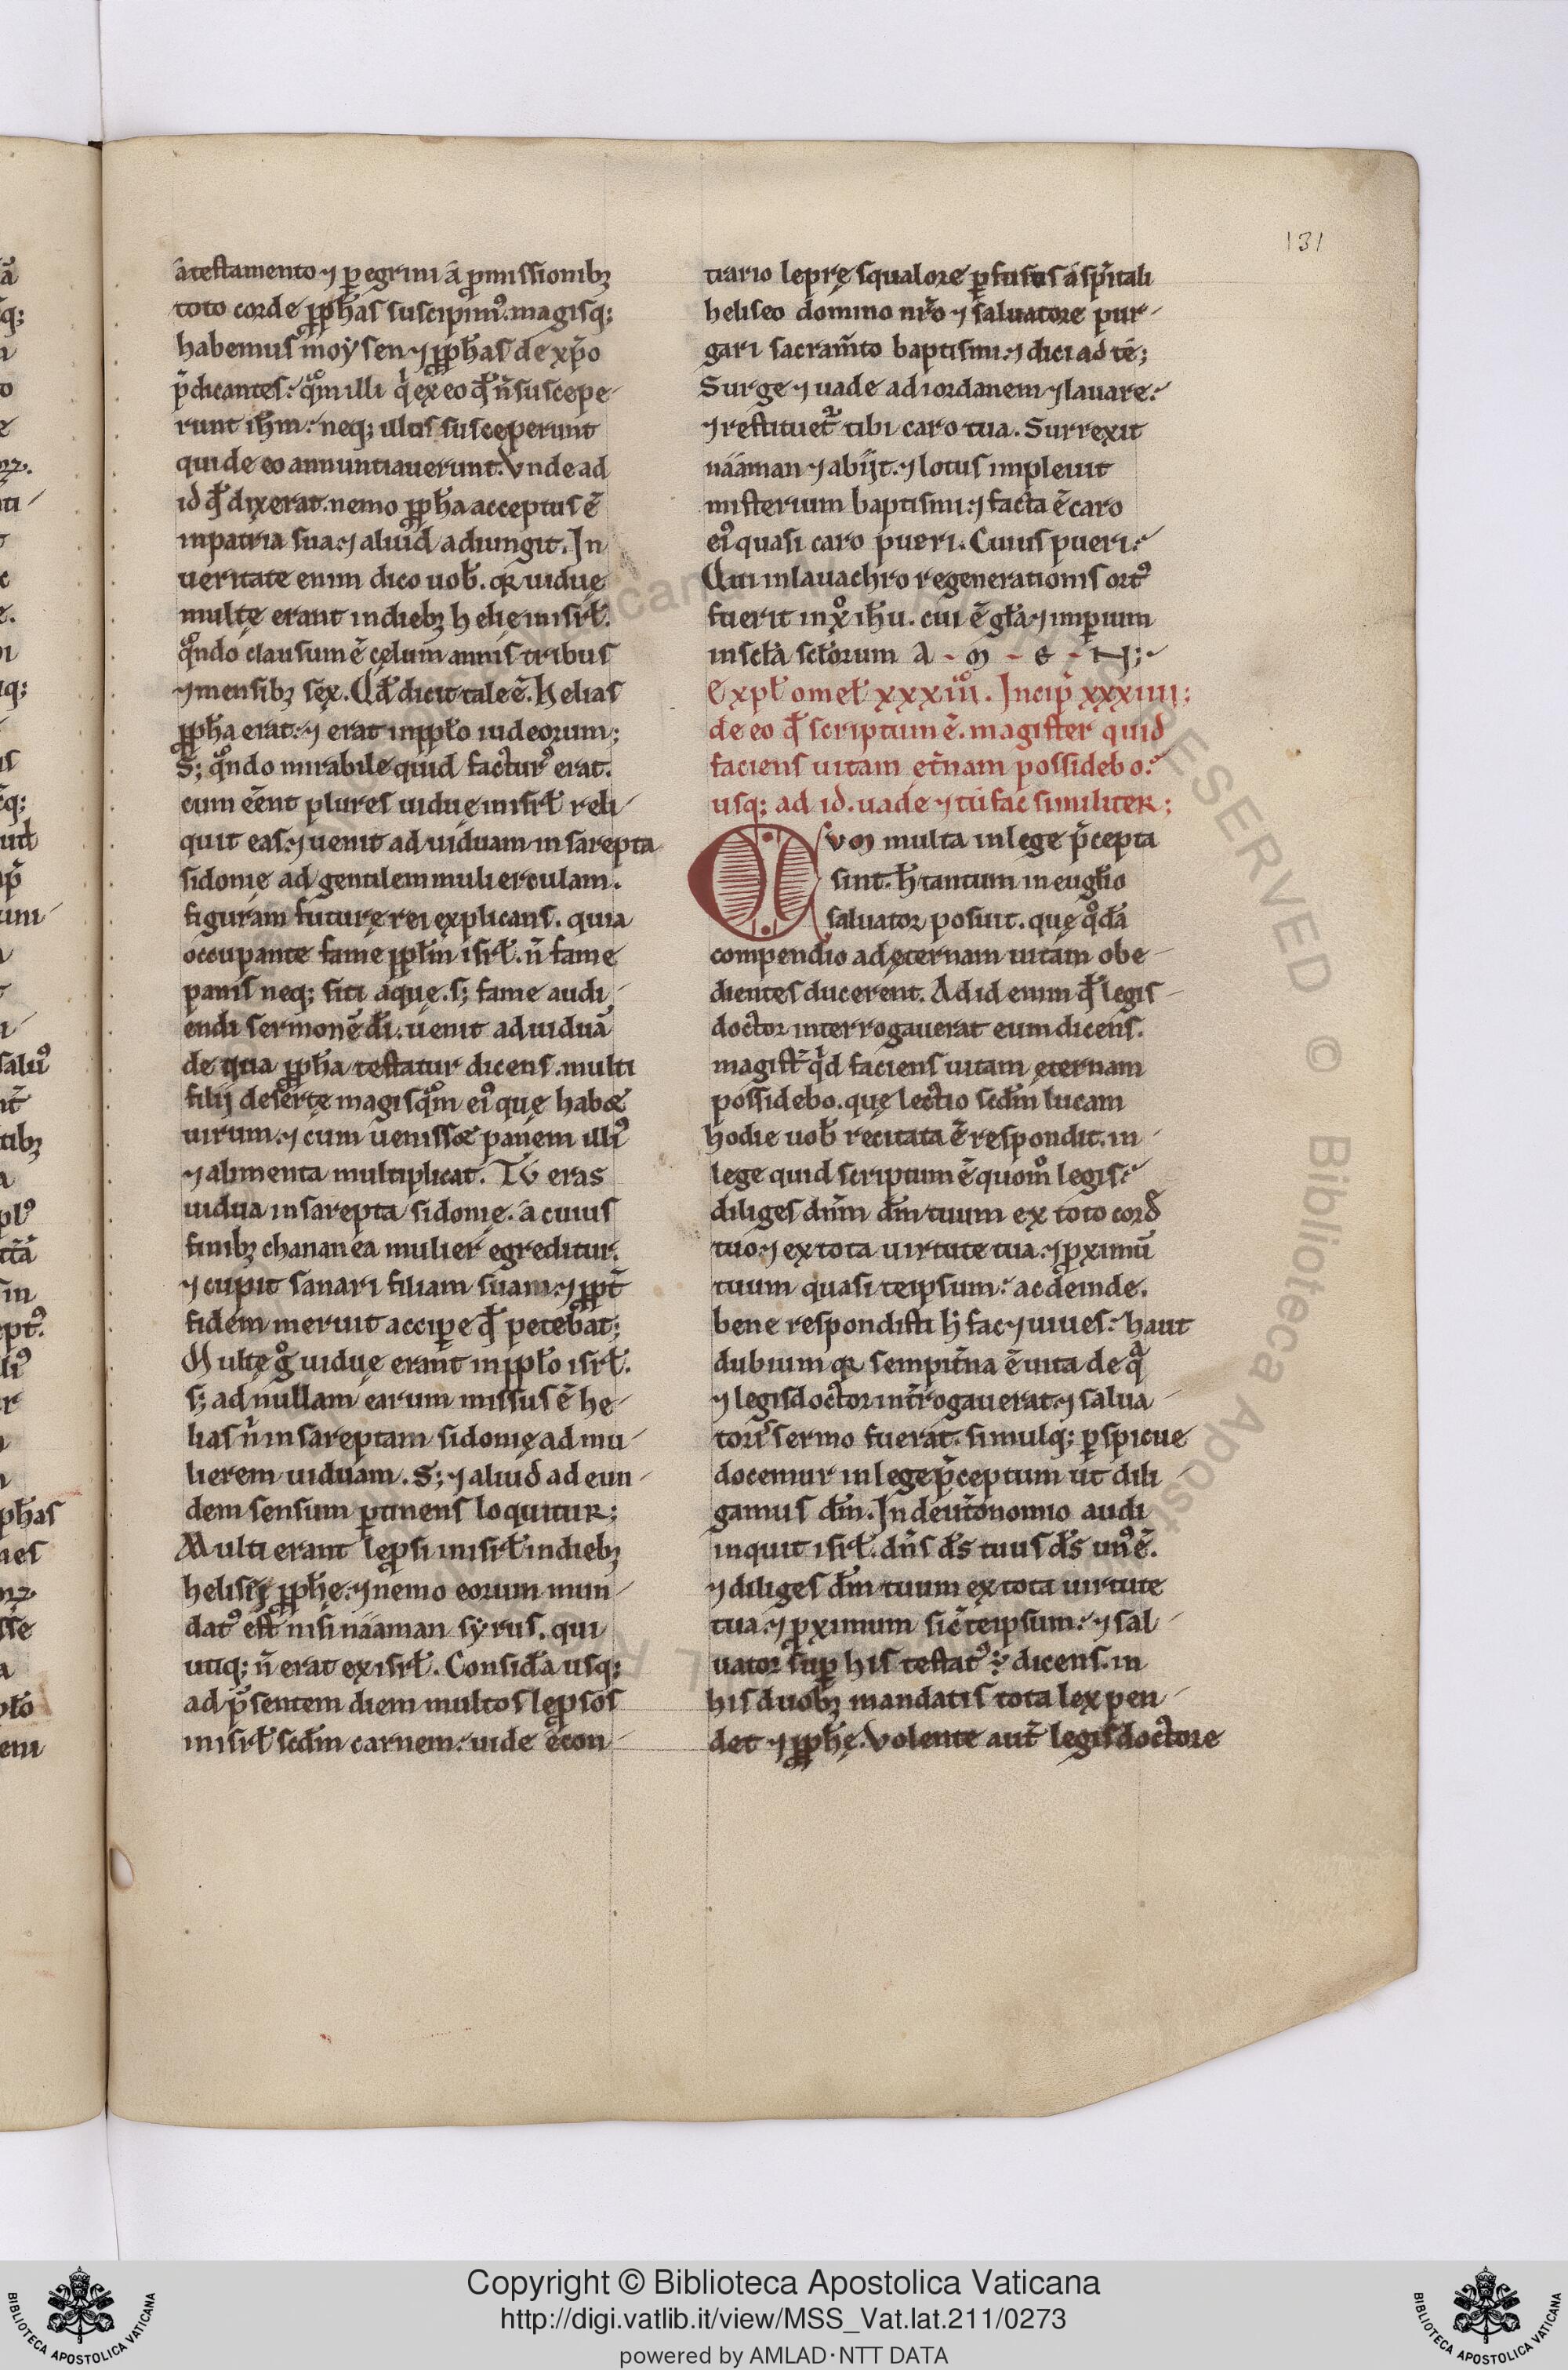 131
a testamento ⁊ peregrini a ꝓmissionibꝫ
toto corde ꝓph̃as suscipimꝰ. magisq;
habemus moẏsen ⁊ ꝓph̃as de xp̃o
p̃dicantes: qͦm illi qͥ ex eo qđ ñ suscepe-
runt ih̃m: neq; ultis susceperunt
qui de eo annuntiauerunt. Vnde ad
id qđ dixerat. nemo ꝓph̃a acceptus ẽ
in patria sua: ⁊ aliud adiungit. In
ueritate enim dico uob̃. qꝛ uiduę
multę erant in diebꝫ helię in isrł.
qͦndo clausum ẽ cęlum annis tribus
⁊ mensibꝫ sex. Qđ dicit tale ẽ. Helias
ꝓph̃a erat: ⁊ erat in pp̃lo iudeorum;
S; qͦndo mirabile quid facturꝰ erat.
cum eẽnt plures uiduę in isrł reli-
quit eas: ⁊ uenit ad uiduam in sarepta
sidonię ad gentilem mulierculam.
figuram futurę rei explicans. quia
occupante fame pp̃lm isrł. ñ fame
panis neq; siti aquę. s; fame audi-
endi sermonẽ dĩ. uenit ad uiduã
de qua ꝓph̃a testatur dicens. multi
filij desertę magis qͦm eiꝰ quę habet
uirum: ⁊ cum uenisset panem illiꝰ
⁊ alimenta multiplicat. TV eras
uidua in sarepta sidonię. a cuius
finibꝫ chananea mulier egreditur.
⁊ cupit sanari filiam suam: ⁊ ꝓpt̃
fidem meruit accipe qđ petebat;
Multę g̊ uiduę erant in pp̃lo isrł.
s; ad nullam earum missus ẽ he-
lias nͥ in sareptam sidonię ad mu-
lierem uiduam. S; ⁊ aliud ad eun-
dem sensum ꝑtinens loquitur;
Multi erant leꝓsi in isrł in diebꝫ
helisẽj ꝓph̃ę: ⁊ nemo eorum mun-
datꝰ est̃ nisi naaman sẏrus. qui
utiq; ñ erat ex isrł. Considã usq;
ad p̃sentem diem multos leꝓsos
in isrł scđm carnem: uide econ-
tiario leprę squalore ꝑfusus a sp̃itali
heliseo domino nr̃o ⁊ saluatore pur-
gari sacram̃to baptismi: ⁊ dici ad te;
Surge ⁊ uade ad iordanem ⁊ lauare:
⁊ restituet̃ tibi caro tua. Surrexit
naaman ⁊ abijt. ⁊ lotus impleuit
misterium baptismi: ⁊ facta ẽ caro
eiꝰ quasi caro pueri. Cuius pueri:
Qui in lauachro regenerationis ortꝰ
fuerit in xͦ ih̃u. cui ẽ gła ⁊ imꝑium
in scłã scłorum A - M - E - N;
Expł omeł xxxiiiͦ. Incip̃ xxxiiii;
de eo qđ scriptum ẽ. magister quid
faciens uitam et̃nam possidebo:
usq; ad id. uade ⁊ tu fac similiter;
CVM multa in lege p̃cepta
sint. h̃ tantum in euglĩo
saluator posuit. quę qͦdã
compendio ad ęternam uitam obe-
dientes ducerent. Ad id enim qđ legis-
doctor interrogauerat eum dicens.
magist̃ qͥd faciens uitam ęternam
possidebo. quę lectio scđm lucam
hodie uob̃ recitata ẽ respondit. in
lege quid scriptum ẽ quom̊ legis:
diliges dñm dm̃ tuum ex toto cord̃
tuo: ⁊ ex tota uirtute tua: ⁊ ꝓximũ
tuum quasi teipsum: ac deinde.
bene respondisti h̃ fac ⁊ uiues: haut
dubium qꝛ sempit̃na ẽ uita de qᷓ
⁊ legisdoctor int̃rogauerat: ⁊ salua-
toris sermo fuerat. simulq; ꝑspicue
docemur in lege p̃ceptum ut dili-
gamus dm̃. In deut̃onomio audi
inquit isrł. dñs ds̃ tuus ds̃ unꝰ ẽ.
⁊ diliges dm̃ tuum ex tota uirtute
tua: ⁊ ꝓximum sic̃ teipsum: ⁊ sal-
uator suꝑ his testatꝰ; dicens. in
his duobꝫ mandatis tota lex pen-
det ⁊ ꝓph̃ę. Volente aut̃ legisdoctore
Copyright © Biblioteca Apostolica Vaticana
http://digi.vatlib.it/view/MSS_Vat.lat.211/0273
powered by AMLAD·NTT DATA